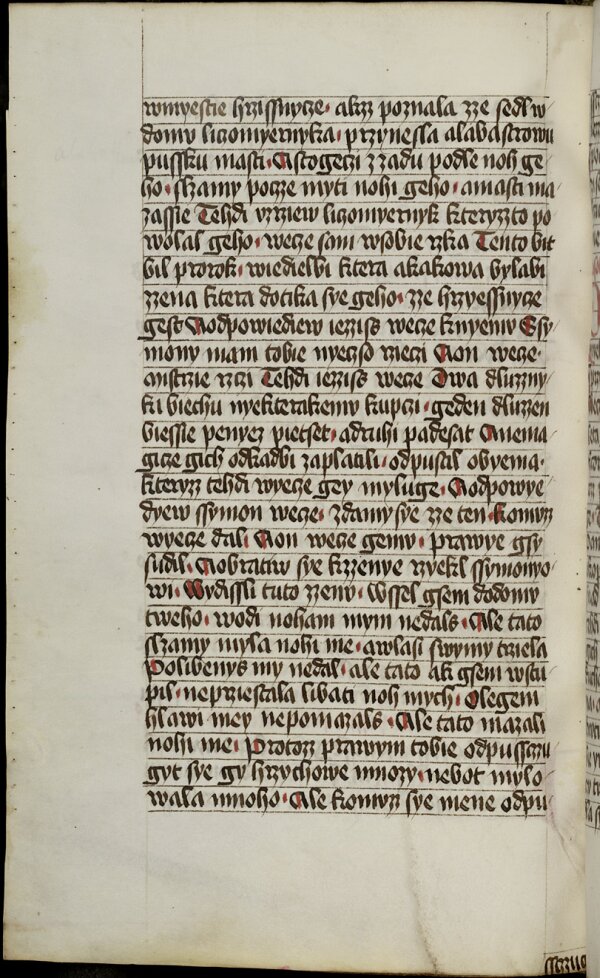 wmyestie hrzissnycze · akzz poznala zze sedl w
domu liczomyernyka · przynesla alabastrowu
pussku masti · Astogeczi zzadu podle noh ge
ho · slzamy pocze myti nohi geho · amasti ma
zassie Tehdi vzrziew liczomyernyk kteryzzto po
wolal geho · wecze sam wsobie rzka Tento bit
bil prorok · wiedielbi ktera akakowa bylabi
zzena ktera dotika sye geho · zze hrzyessnycze
gest Aodpowiediew iezziss wecze knyemu Ssy
mony mam tobie nyeczso rzeczi Aon wecze ·
mistrzie rzci Tehdi iezziss wecze Dwa dluzzny
ki biechu nyekterakemu kupczi · geden dluzzen
biessie penyez pietset · adruhi padesat Anema
gicze gich odkadbi zaplatili · odpustil obyema ·
kteryzz tehdi wyecze gey myluge · Aodpowye
dyew ssymon wecze · zdamy sye zze ten · komuzz
wyecze dal · Aon wecze gemu · prawye gsy
sudil · Aobrativ sye kzzenye rzyekl ssymono
wi · Wydissli tuto zzenu · Wssel gsem dodomu
tweho · wodi noham mym nedals · Ale tato
slzamy myla nohi me · awlasi swymy trziela
Polibenys my nedal · ale tato ak gsem wstu
pil · neprziestala libati noh mych · Olegem
hlawi mey nepomazals · Ale tato mazali
nohi me · Protozz prawym tobie odpusszczu
gyt sye gy hrzychowe mnozy · nebot mylo
wala mnoho · Ale komuzz sye mene odpu